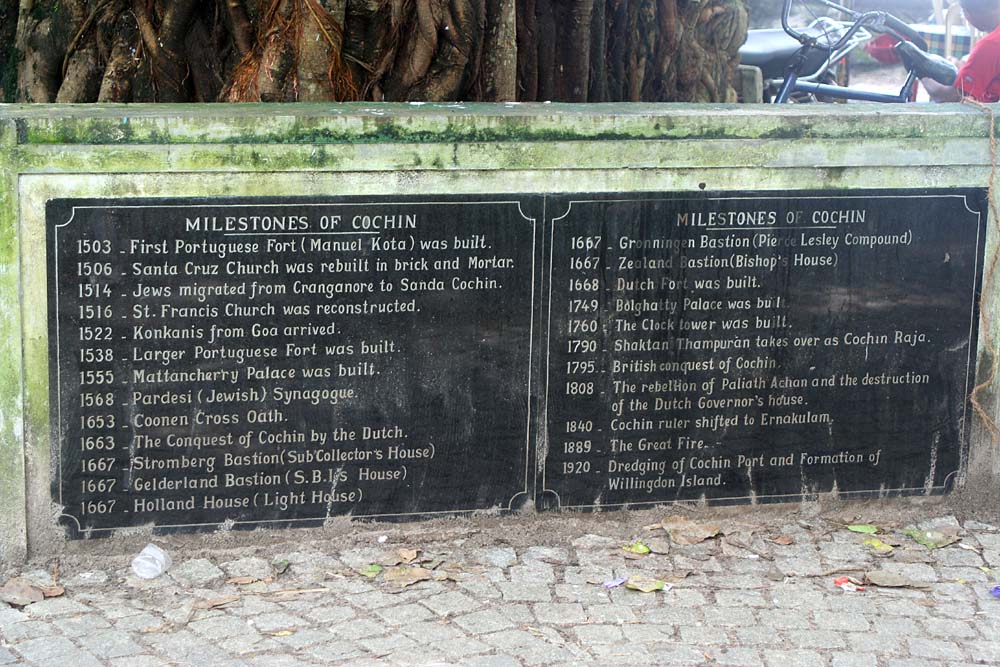 MILESTONES OF COCHIN
1503 - First Portuguese Fort (Manuel Kota) was built.
1506 - Santa Cruz Church was rebuilt in brick and Mortar.
1514 - Jews migrated from Cranganore to Sanda Cochin.
1516 - St. Francis Church was reconstructed.
1522 - Konkanis from Goa arrived.
1538 - Larger Portuguese Fort was built.
1555 - Mattancherry Palace was built.
1568 - Pardesi (Jewish) Synagogue.
1653 - Coonen Cross Oath.
1663 - The Conquest of Cochin by the Dutch.
1667 - Stromberg Bastion (Sub Collector's House)
1667 - Gelderland Bastion (S.B.I's House)
1667 - Holland House (Light House)
MILESTONES OF COCHIN
1667 - Gronningen Bastion (Pierce Lesley Compound)
1667 - Zealand Bastion (Bishop's House)
1668 - Dutch Fort was built.
1749 - Bolghatty Palace was built.
1760 - The Clock tower was built.
1790 - Shaktan Thampuran takes over as Cochin Raja.
1795 - British conquest of Cochin.
1808 - The rebellion of Paliath Achan and the destruction
of the Dutch Governor's house.
1840 - Cochin ruler shifted to Ernakulam.
1889 - The Great Fire.
1920 - Dredging of Cochin Port and Formation of
Willingdon Island.